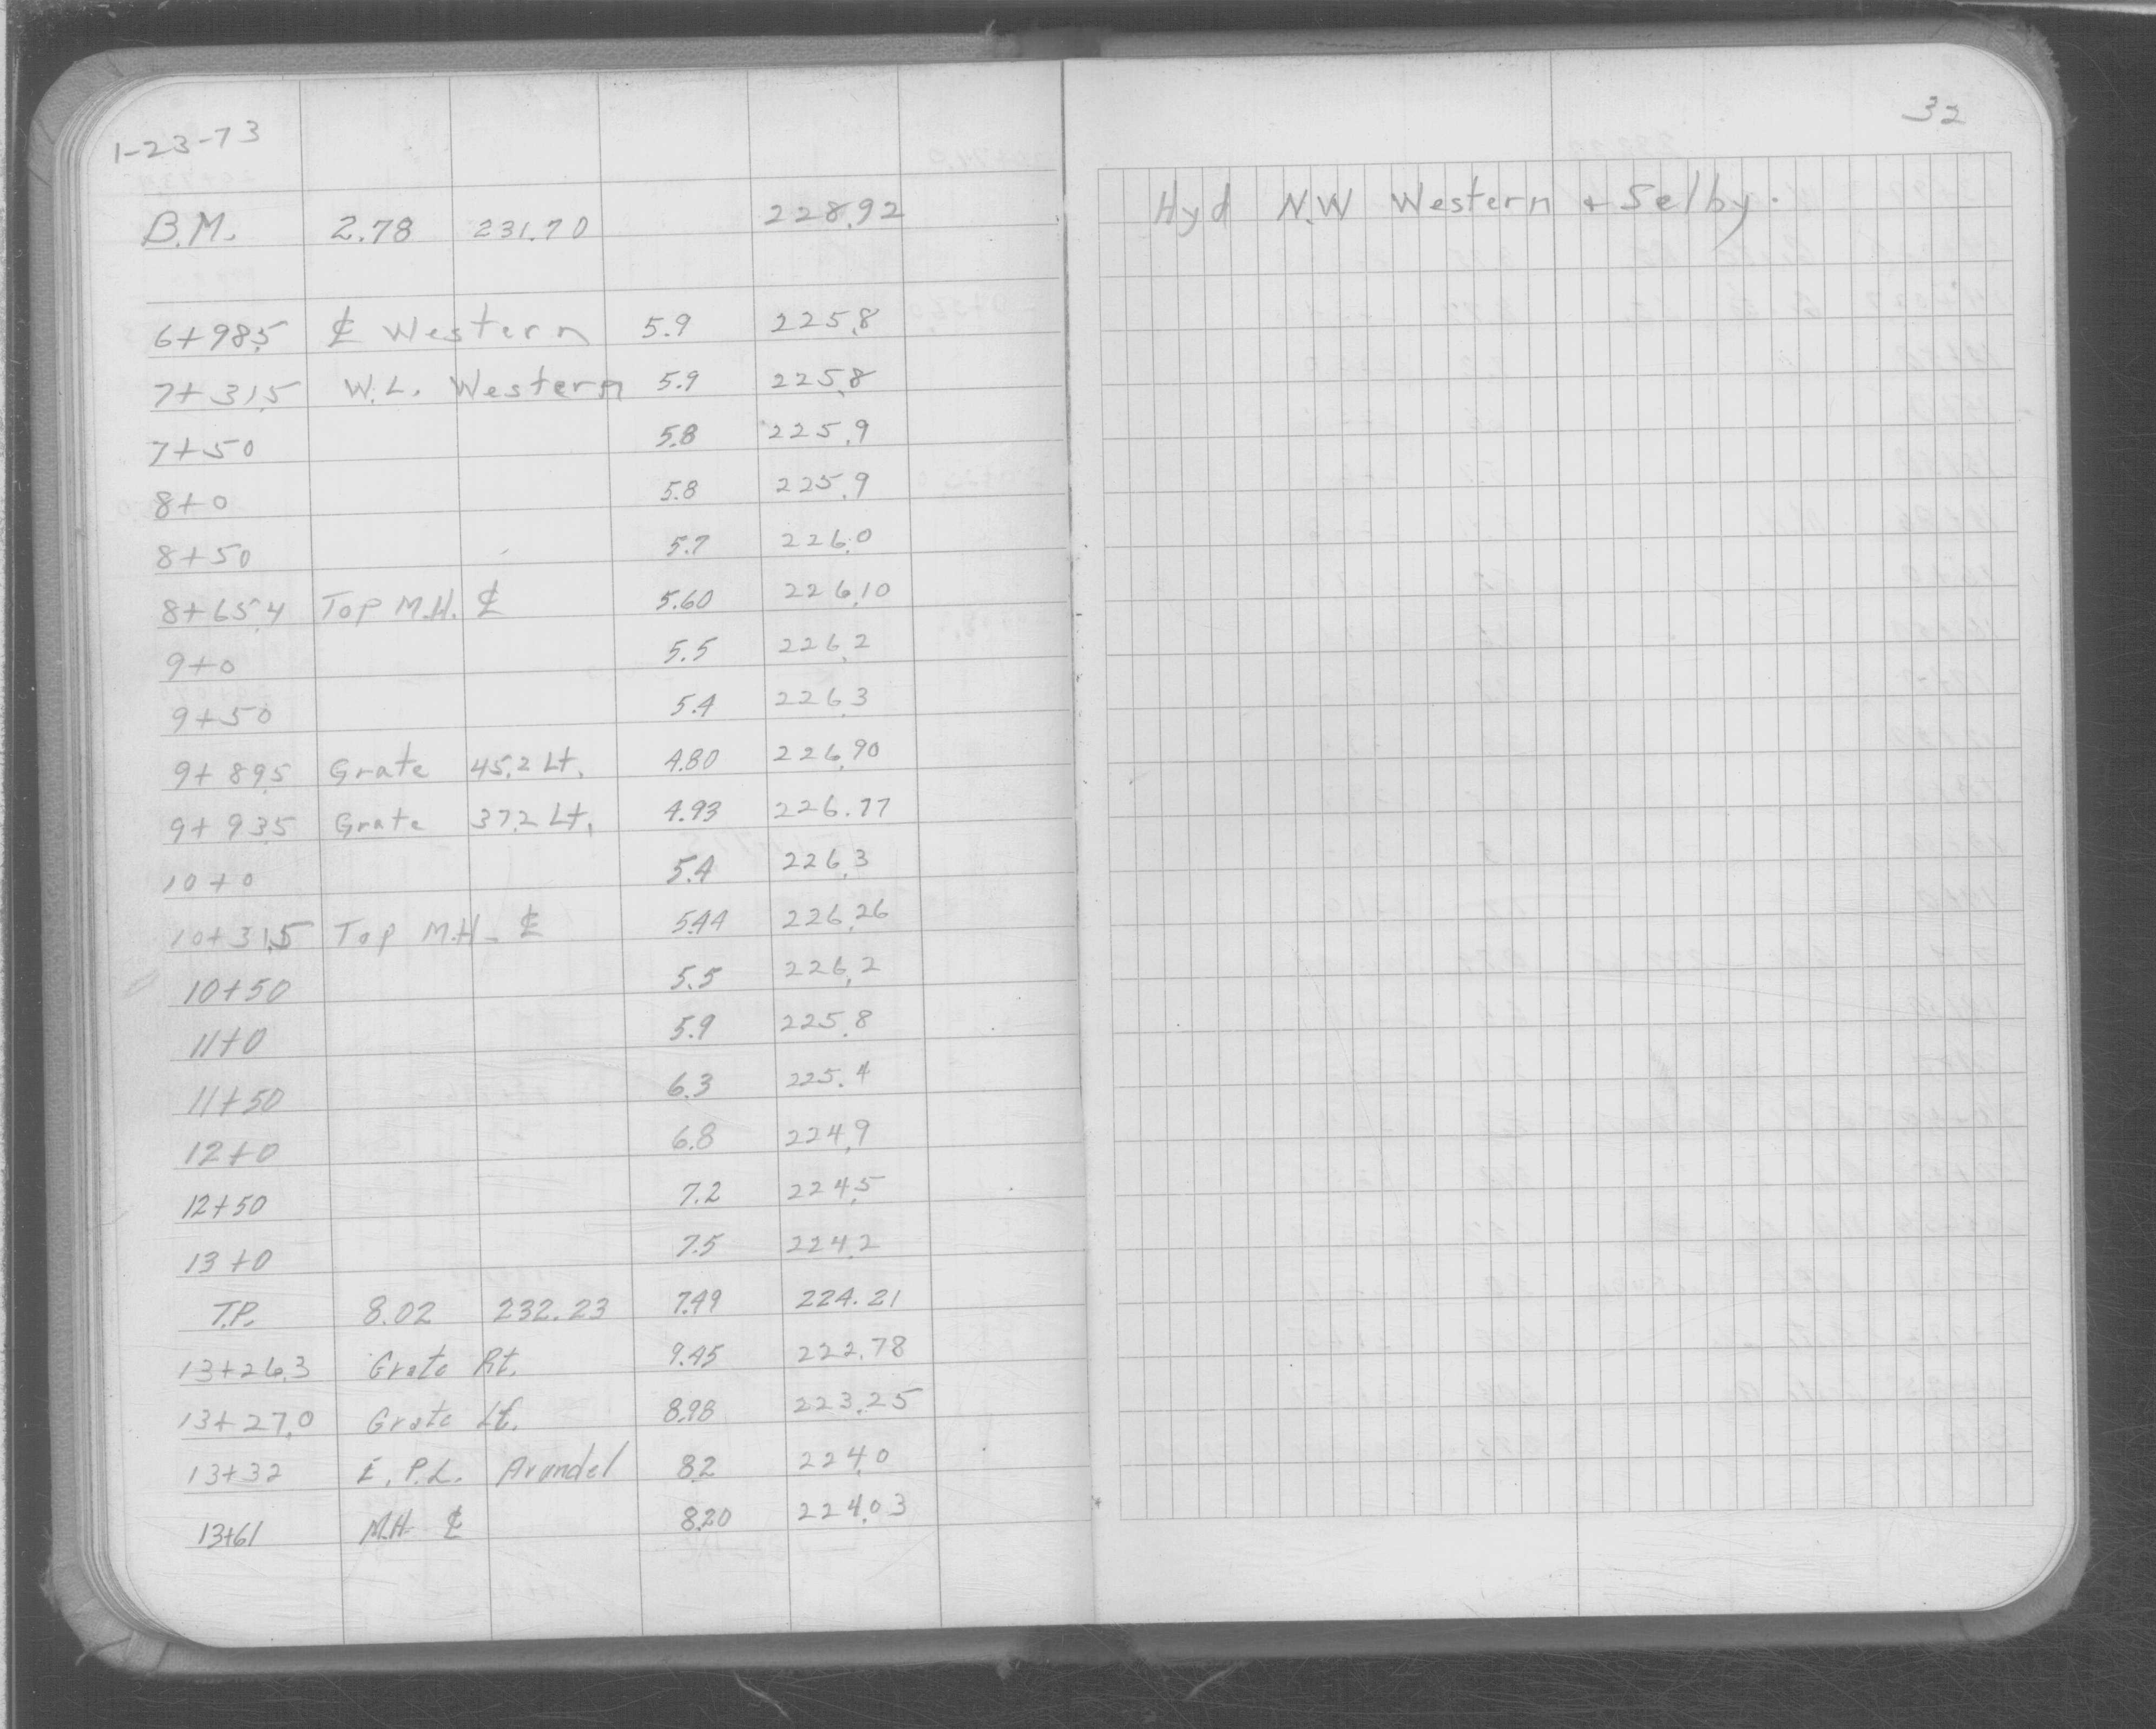 32
1-23-73
B.M. 2.78 231.70 228.92 Hyd N.W Western + Selby.
6+98.5 ℄ Western 5.9 225.8
7+31.5 W.L. Western 5.9 225.8
7+50 5.8 225.9
8+0 5.8 225.9
8+50 5.7 226.0
8+65.4 Top M.H. ℄ 5.60 226.10
9+0 5.5 226.2
9+50 5.4 226.3
9+89.5 Grate 45.2 Lt. 4.80 226.90
9+93.5 Grate 37.2 Lt. 4.93 226.77
10+0 5.4 226.3
10+31.5 Top M.H. ℄ 5.44 226.26
10+50 5.5 226.2
11+0 5.9 225.8
11+50 6.3 225.4
12+0 6.8 224.9
12+50 7.2 224.5
13+0 7.5 224.2
T.P. 8.02 232.23 7.49 224.21
13+26.3 Grate Rt. 9.45 222.78
13+27.0 Grate Lt. 8.98 223.25
13+32 E.P.L. Arundel 8.2 224.0
13+61 M.H. ℄ 8.20 224.03